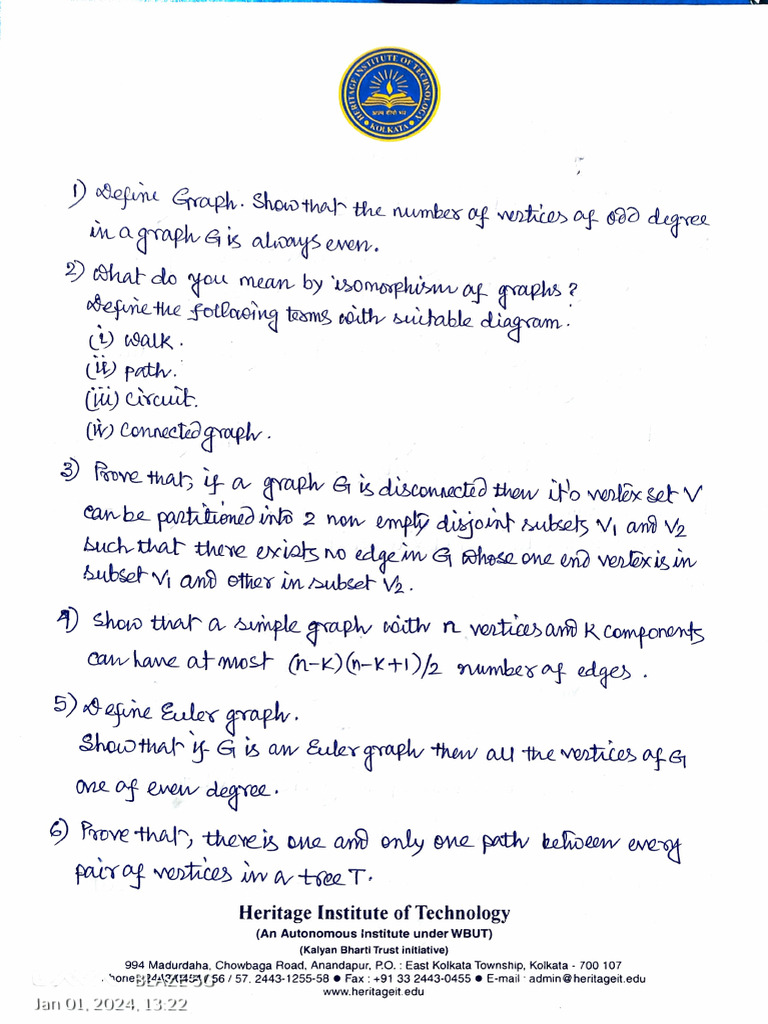 HERITAGE INSTITUTE OF TECHNOLOGY
KOLKATA
1) Define Graph. Show that the number of vertices of odd degree
in a graph G is always even.
2) What do you mean by isomorphism of graphs?
Define the following terms with suitable diagram.
(i) walk.
(ii) path.
(iii) circuit.
(iv) connected graph.
3) Prove that, if a graph G is disconnected then it's vertex set V
can be partitioned into 2 non empty disjoint subsets V1 and V2
such that there exists no edge in G whose one end vertex is in
subset V1 and other in subset V2.
4) Show that a simple graph with n vertices and K components
can have at most (n-K)(n-K+1)/2 number of edges.
5) Define Euler graph.
Show that if G is an Euler graph then all the vertices of G
are of even degree.
6) Prove that, there is one and only one path between every
pair of vertices in a tree T.
Heritage Institute of Technology
(An Autonomous Institute under WBUT)
(Kalyan Bharti Trust initiative)
994 Madurdaha, Chowbaga Road, Anandapur, P.O. : East Kolkata Township, Kolkata - 700 107
/ 56 / 57. 2443-1255-58 ● Fax : +91 33 2443-0455 ● E-mail : admin@heritageit.edu
BLAZE 5G
www.heritageit.edu
Jan 01, 2024, 13:22